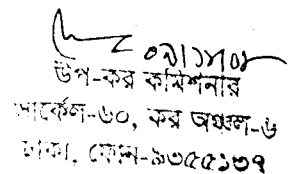 ০৯/১২/০৮
উপ-কর কমিশনার
সার্কেল-৬০, কর অঞ্চল-৬
ঢাকা, ফোন-৯৩৫৫১৩৭